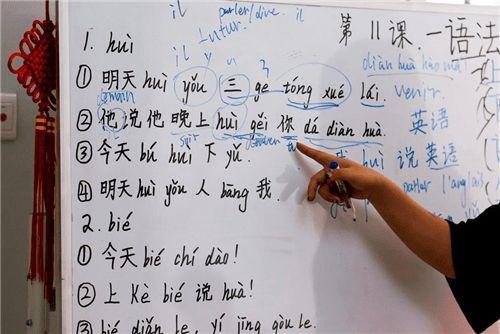 il parler/dire. il
futur.
第 11 课. 一语法
1. huì
il y
diàn huà hào mǎ
① 明天 huì yǒu 三 ge tóng xué lái.
demain
venir.
② 他说他晚上 huì gěi 你 dǎ diàn huà.
英语
soir
③ 今天 bú huì 下 yǔ.
我 huì 说 英语
parler l'anglais
④ 明天 huì yǒu 人 bāng 我.
2. bié
① 今天 bié chí dào!
② 上 Kè bié 说 huà!
③ bié diǎn le, yǐ jīng gòu le.